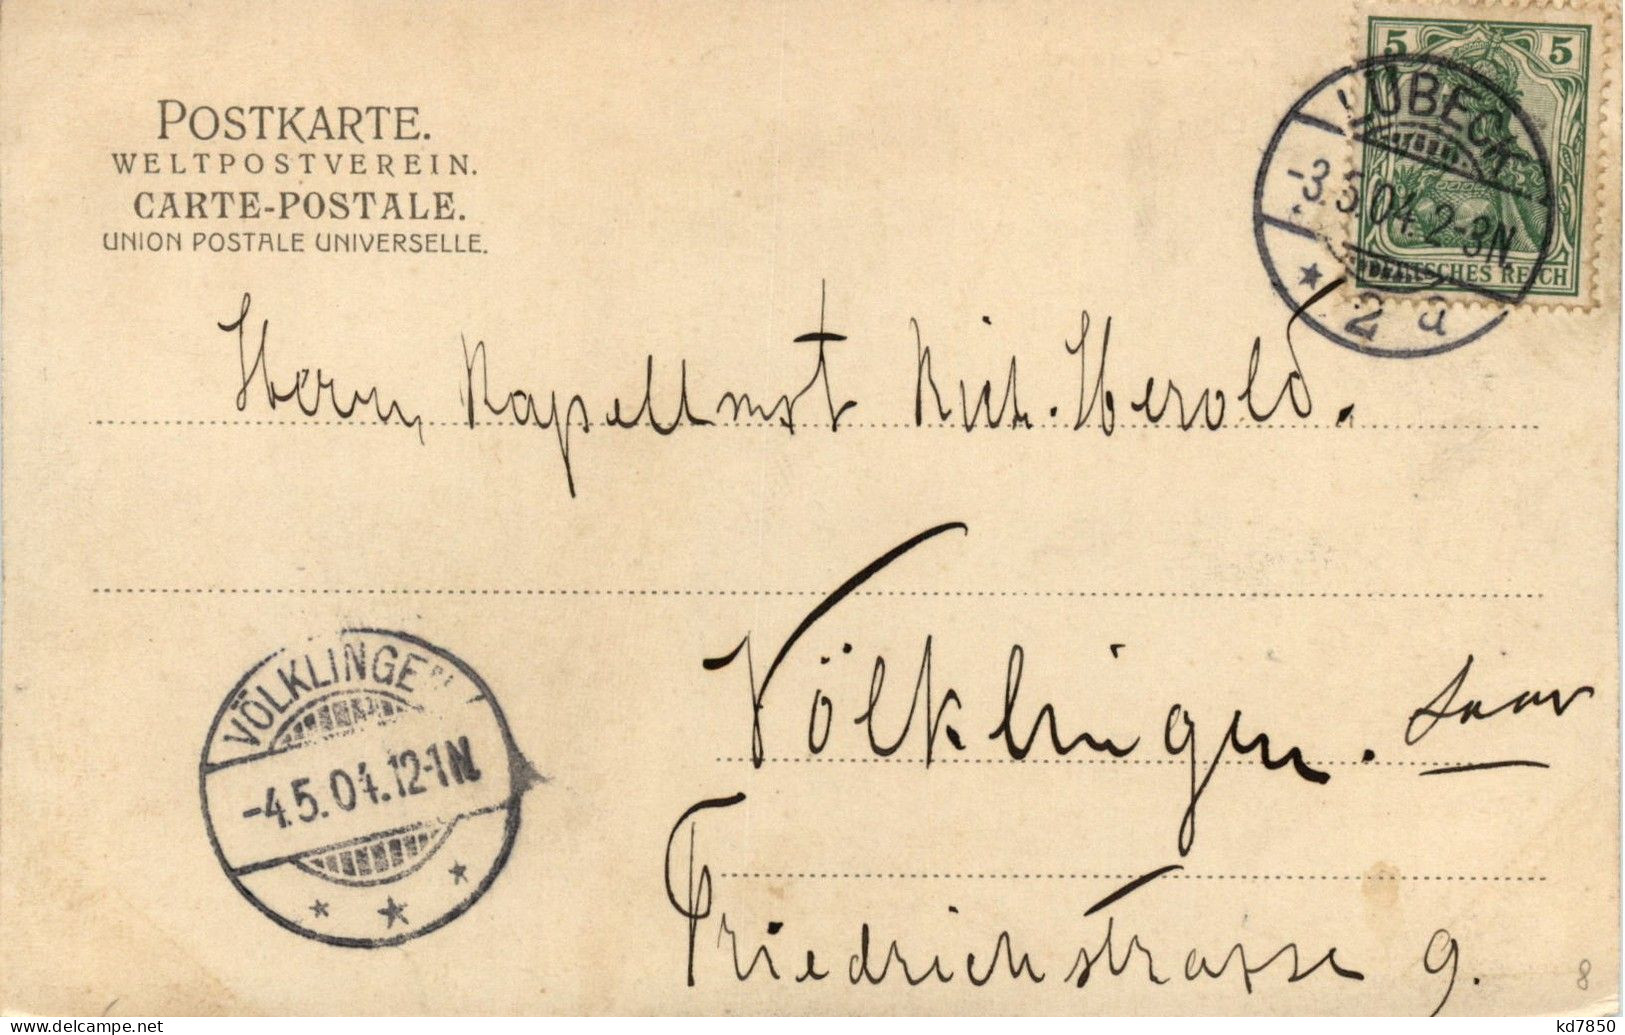 POSTKARTE.
WELTPOSTVEREIN.
CARTE-POSTALE.
UNION POSTALE UNIVERSELLE.
5 5
DEUTSCHES REICH
LÜBECK
-3.5.04.2-3N.
* 2 a
Herrn Kapellmst Rich. Herold.
Völklingen. Saar
Friedrichstrasse 9.
VÖLKLINGEN
-4.5.04.12-1N.
* * *
8
kd7850